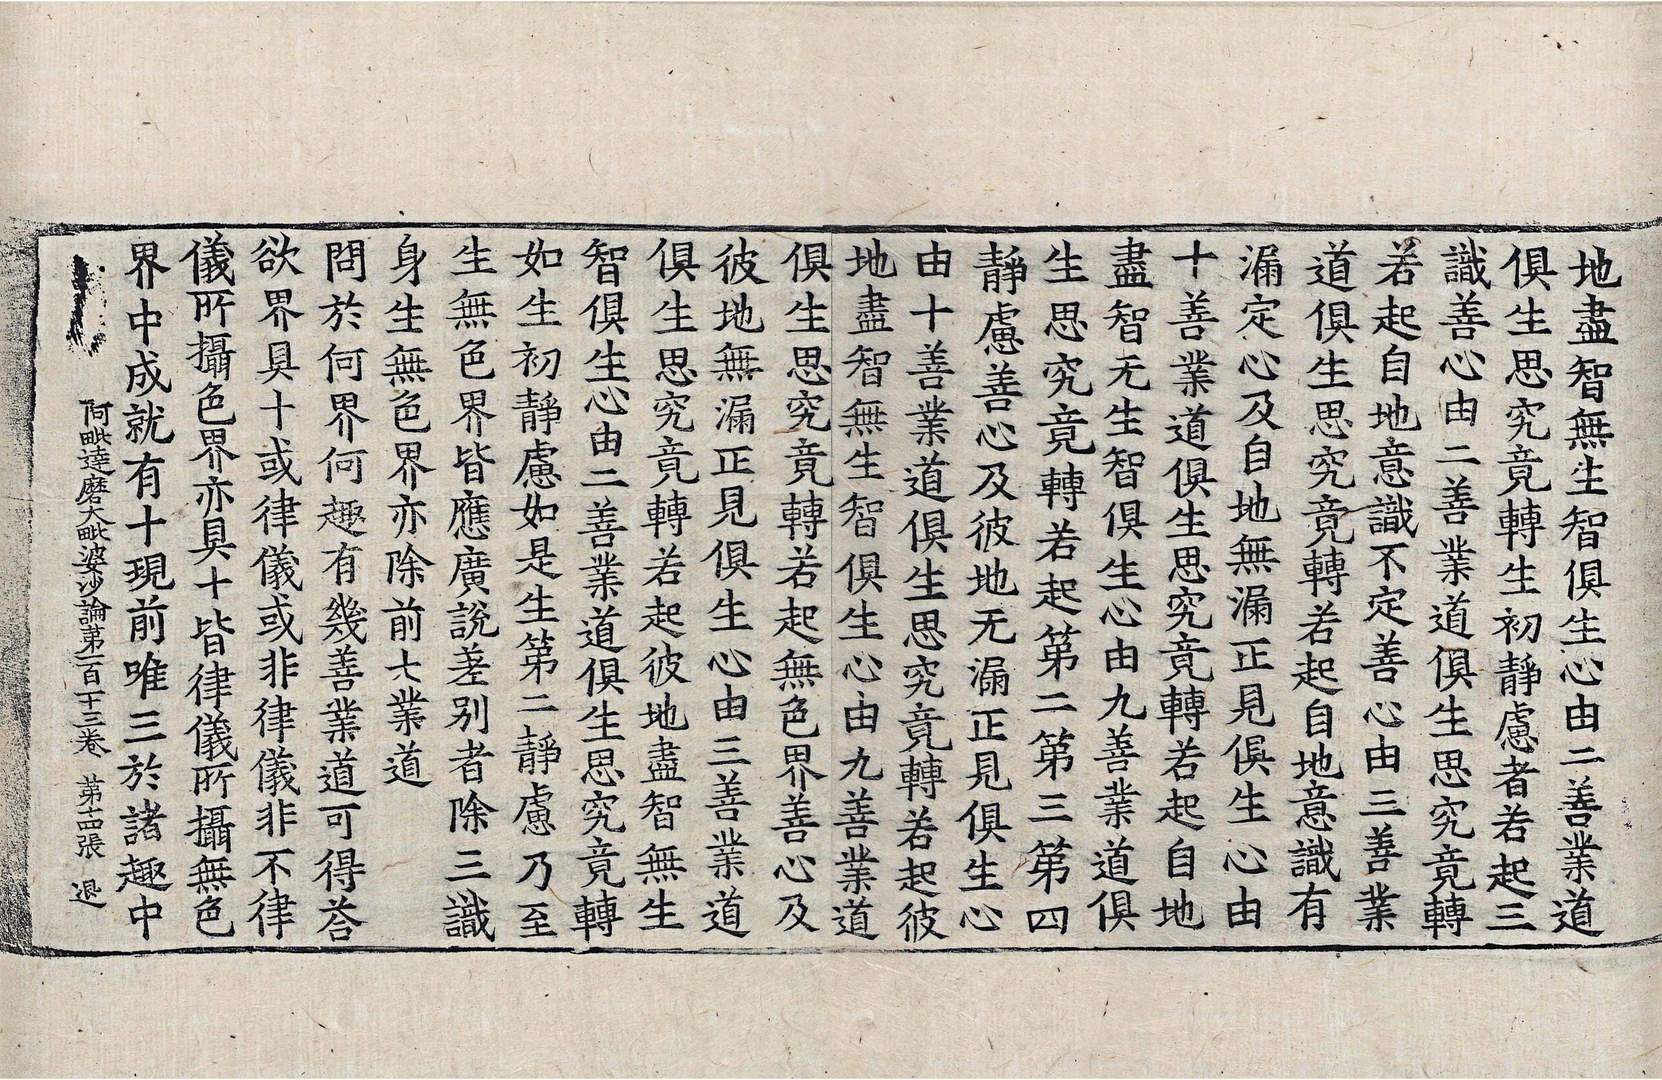 地盡智無生智俱生心由二善業道
俱生思究竟轉生初靜慮者若起三
識善心由二善業道俱生思究竟轉
若起自地意識不定善心由三善業
道俱生思究竟轉若起自地意識有
漏定心及自地無漏正見俱生心由
十善業道俱生思究竟轉若起自地
盡智无生智俱生心由九善業道俱
生思究竟轉若起第二第三第四
靜慮善心及彼地无漏正見俱生心
由十善業道俱生思究竟轉若起彼
地盡智無生智俱生心由九善業道
俱生思究竟轉若起無色界善心及
彼地無漏正見俱生心由三善業道
俱生思究竟轉若起彼地盡智無生
智俱生心由二善業道俱生思究竟轉
如生初靜慮如是生第二靜慮乃至
生無色界皆應廣說差別者除三識
身生無色界亦除前七業道
問於何界何趣有幾善業道可得荅
欲界具十或律儀或非律儀非不律
儀所攝色界亦具十皆律儀所攝無色
界中成就有十現前唯三於諸趣中
阿毗達磨大毗婆沙論第一百十三卷 第十四張 退